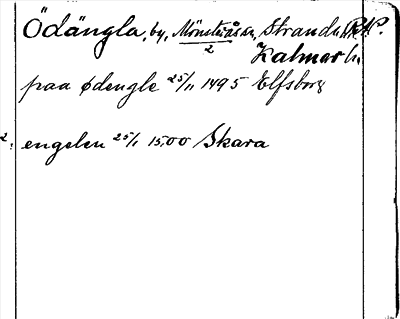 Ödängla, by, Mönsterås sn, Strands hd.
2
Kalmar l.
paa ødengle 25/11 1495 Elfsborg
2. engelen 25/1 1500 Skara